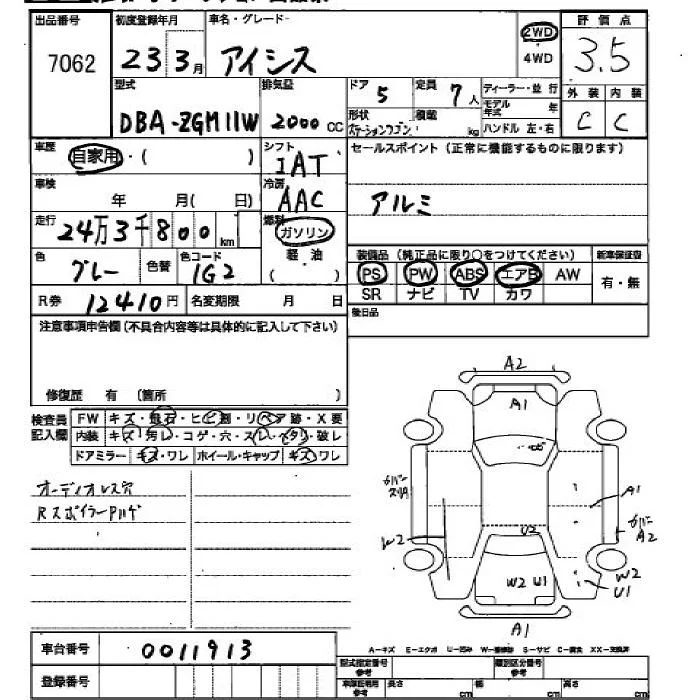 出品番号 初度登録年月 車名・グレード 2WD 4WD 評価点
7062 23 3月 アイシス 3.5
型式 排気量 ドア 定員 ディーラー・並行 外装 内装
DBA-ZGM11W 2000cc 5 7人 モデル年式 年 C C
形状 ステーションワゴン 積載 kg ハンドル 左・右
車歴 自家用・( ) シフト IAT セールスポイント(正常に機能するものに限ります)
車検 年 月( 日) 冷房 AAC アルミ
走行 24万3千800km 燃料 ガソリン
色 グレー 色替 色コード 1G2 軽油 ( )
装備品(純正品に限り○をつけてください) 新車保証書
PS PW ABS エアB AW 有・無
SR ナビ TV カワ
R券 12410円 名変期限 月 日
後日品
注意事項申告欄(不具合内容等は具体的に記入して下さい)
修復歴 有 (箇所 )
検査員記入欄 FW キズ・飛石・ヒビ割・リペア跡・X要
内装 キズ・汚レ・コゲ・穴・スレ・ヘタリ・破レ
ドアミラー キズ・ワレ ホイール・キャップ キズ・ワレ
オーディオレス穴
RスポイラーPハゲ
A2
A1
A1
カバースリA
カバーA2
W2
U2
W2 U1
W2
U1
A1
車台番号 0011913
A-キズ E-エクボ U-凹み W-補修跡 S-サビ C-腐食 XX-交換済
登録番号
型式指定番号 参考 類別区分番号 参考
車庫証明用 参考 長さ cm 幅 cm 高さ cm